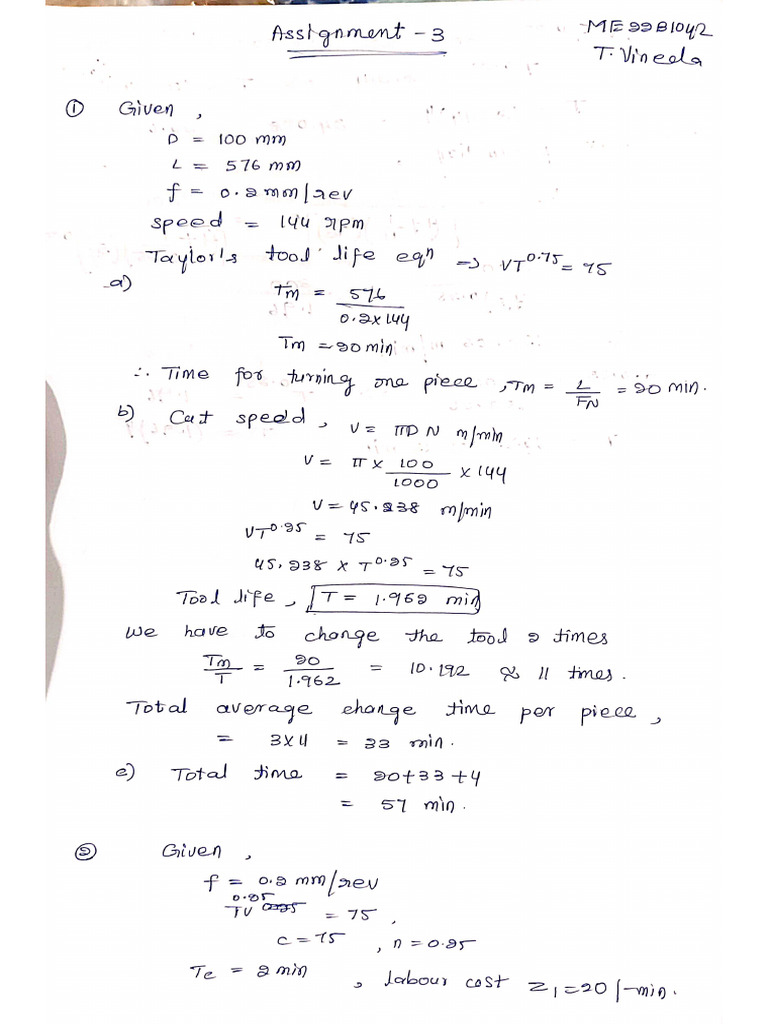 Assignment - 3
ME22B1042
T. Vineela
① Given ,
D = 100 mm
L = 576 mm
f = 0.2 mm/rev
speed = 144 rpm
Taylor's tool life eqn => VT^0.75 = 75
a) Tm = 576 / 0.2x144
Tm = 20 min
∴ Time for turning one piece , Tm = L / FN = 20 min.
b) Cut speed , V = πDN m/min
V = π x 100 / 1000 x 144
V = 45.238 m/min
VT^0.25 = 75
45.238 x T^0.25 = 75
Tool life , T = 1.962 min
We have to change the tool 2 times
Tm / T = 20 / 1.962 = 10.192 ≈ 11 times.
Total average change time per piece ,
= 3x11 = 33 min.
c) Total time = 20+33+4
= 57 min.
② Given ,
f = 0.2 mm/rev
TV^0.25 = 75 ,
c = 75 , n = 0.25
Tc = 2 min , labour cost Z1 = 20 /-min.